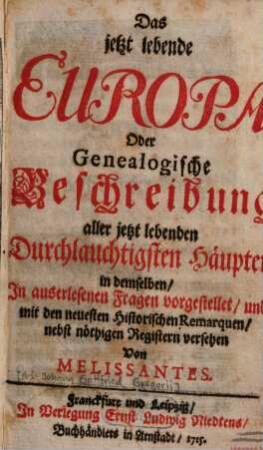 Das
jetzt lebende
EUROPA
Oder
Genealogische
Beschreibung
aller jetzt lebenden
Durchlauchtigsten Häupter
in demselben/
In auserlesenen Fragen vorgestellet/ und
mit den neuesten Historischen Remarquen/
nebst nöthigen Registern versehen
Von
MELISSANTES.
Franckfurt und Leipzig/
In Verlegung Ernst Ludwig Niedtens/
Buchhändlers in Arnstadt/ 1715.